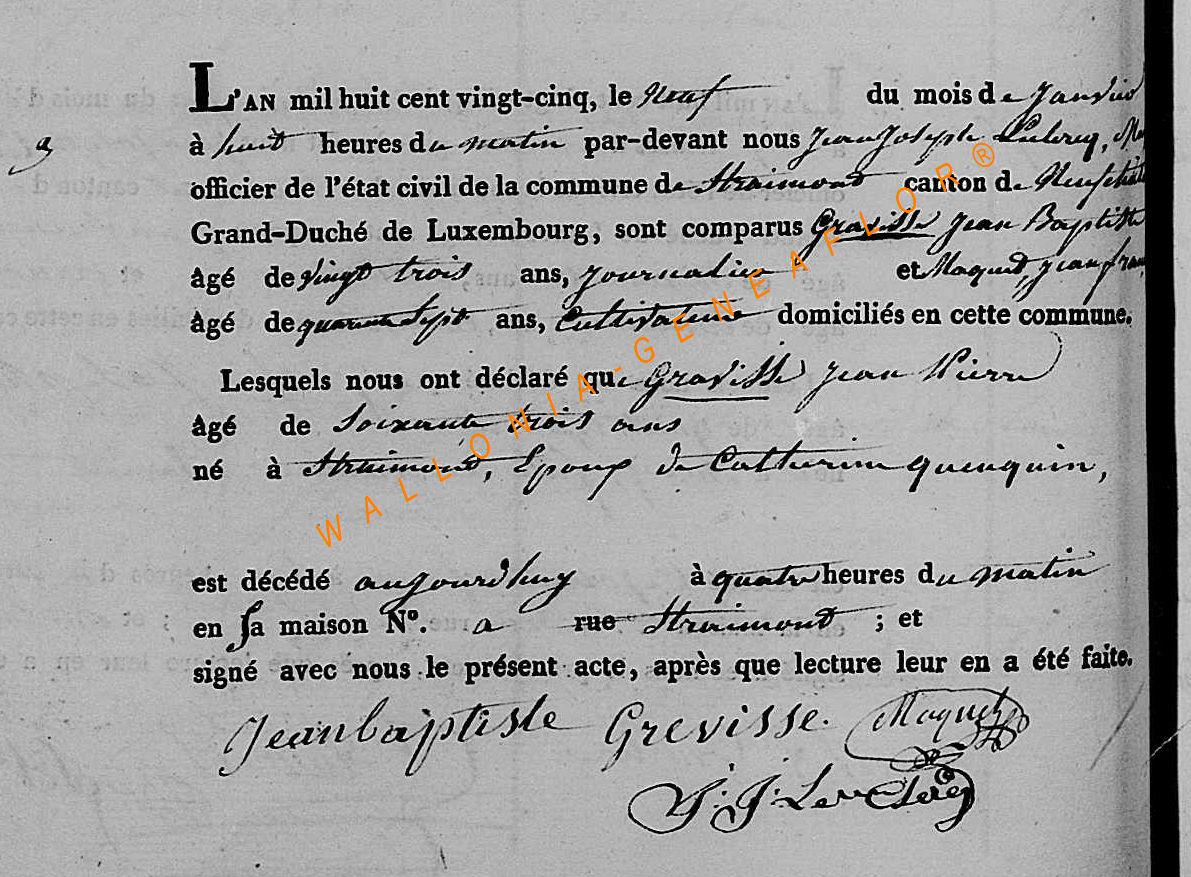 L'AN mil huit cent vingt-cinq, le Neuf du mois de Janvier
à huit heures du matin par-devant nous Jean Joseph Leclercq,
officier de l'état civil de la commune de Straimont canton de Neufchât
Grand-Duché de Luxembourg, sont comparus Gravisse Jean Baptiste
âgé de vingt trois ans, journalier et Maquet, jean fran
âgé de quarante sept ans, Cultivateur domiciliés en cette commune.
Lesquels nous ont déclaré que Gravisse Jean Pierre
âgé de Soixante trois ans
né à Straimont, Epoux de Catherine quenquin,
est décédé aujourd'huy à quatre heures du matin
en sa maison No. a rue Straimont ; et
signé avec nous le présent acte, après que lecture leur en a été faite.
Jean baptiste Grevisse. Maquet
J: J: LeClercq
WALLONIA-GENEAFLOR®